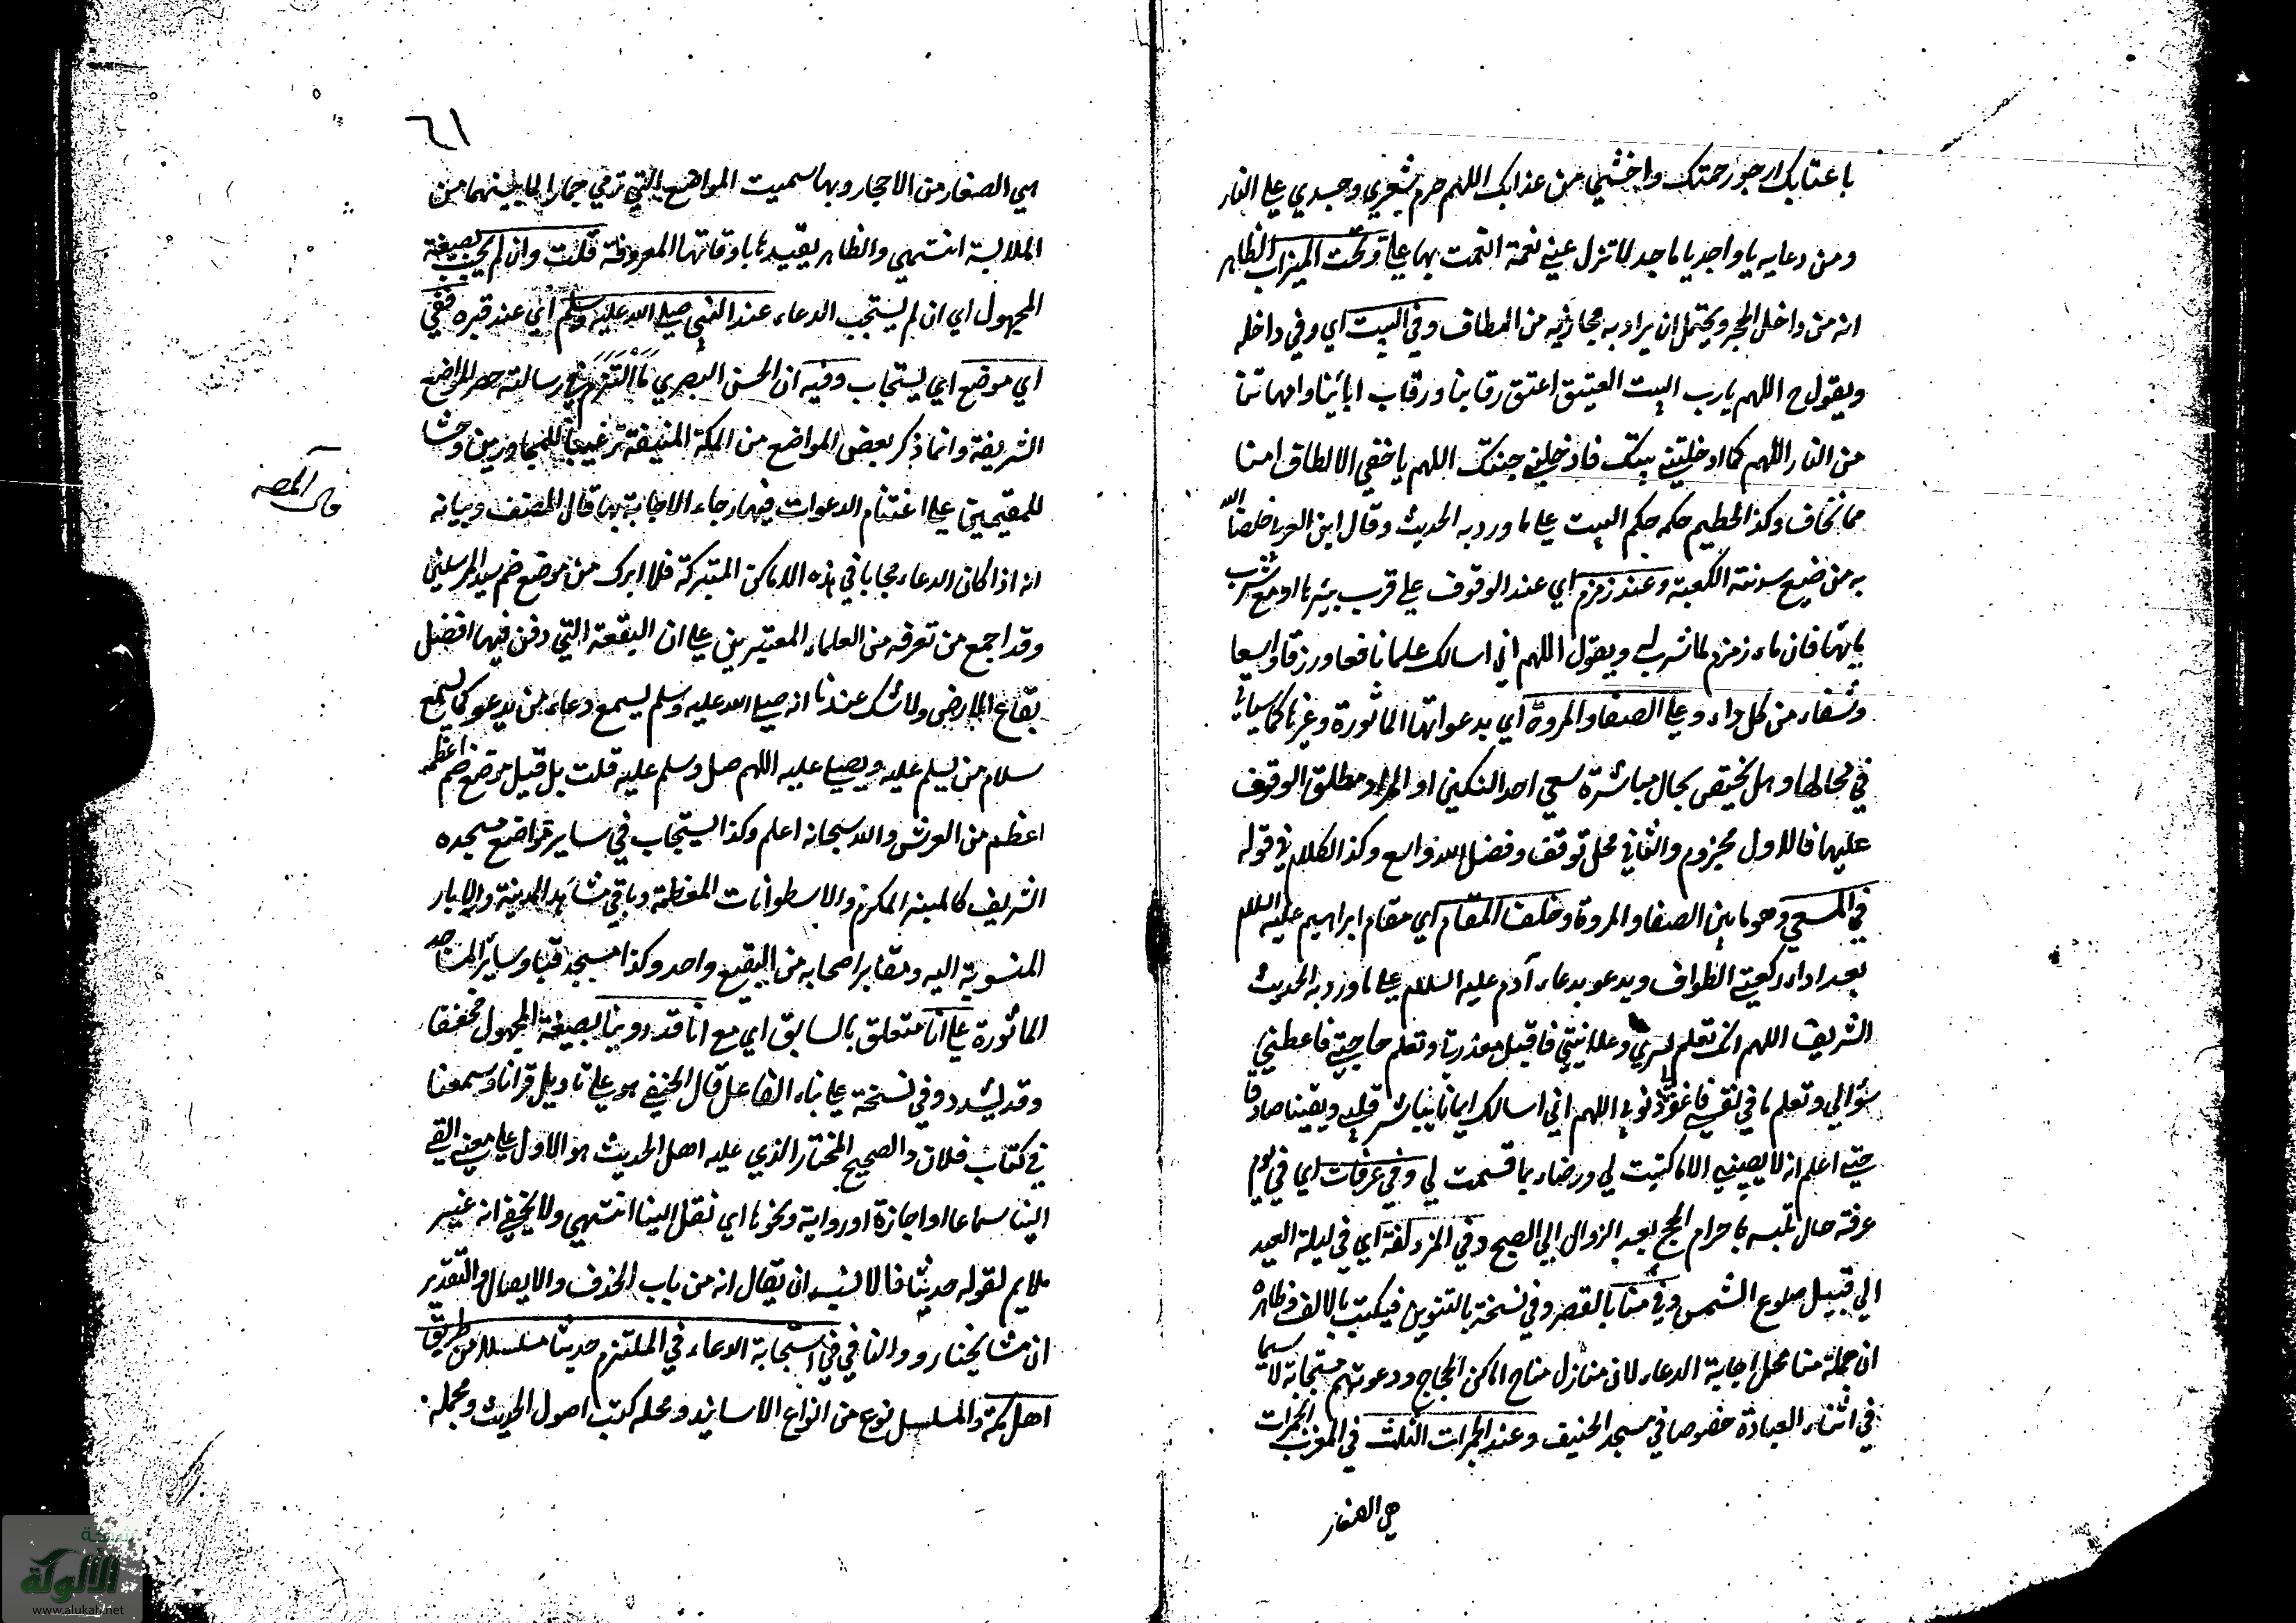 باعتابك ارجو رحمتك واخشي من عذابك اللهم حرم شعري وجسدي علي النار
ومن دعايه يا واجد يا ماجد لا تزل عني نعمة انعمت بها علي وتحت الميزاب الظاهر
انه من داخل الحجر ويحتمل ان يراد به محاذيه من المطاف وفي البيت اي وفي داخله
ويقول ح اللهم يا رب البيت العتيق اعتق رقابنا ورقاب ابائنا وامهاتنا
من النار اللهم كما ادخلتني بيتك فادخلني جنتك اللهم يا خفي الالطاف امنا
مما نخاف وكذا الحطيم حكمه حكم البيت علي ما ورد به الحديث وقال ابن العربي خلصنا الله
به من ضيع سدنة الكعبة وعند زمزم اي عند الوقوف علي قرب بيرها او مع شرب
مائها فان ماء زمزم لما شرب له ويقول اللهم اني اسالك علما نافعا ورزقا واسعا
وشفاء من كل داء وعلي الصفا والمروة اي بدعواتها الماثورة وغيرها كما سياتي
في محالها وهل يختص بحال مباشرة سعي احد النسكين او المراد مطلق الوقوف
عليها فالاول مجزوم والثاني محل توقف وفضل الله واسع وكذا الكلام في قوله
في المسعي وهو ما بين الصفا والمروة وخلف المقام اي مقام ابراهيم عليه السلام
بعد اداء ركعتي الطواف ويدعو بدعاء آدم عليه السلام علي ما ورد به الحديث
الشريف اللهم انك تعلم سري وعلانيتي فاقبل معذرتي وتعلم حاجتي فاعطني
سؤالي وتعلم ما في نفسي فاغفر لي ذنوبي اللهم اني اسالك ايمانا يباشر قلبي ويقينا صادقا
حتي اعلم انه لا يصيبني الا ما كتبت لي ورضاء بما قسمت لي وفي عرفات اي في يوم
عرفة حال تلبسه باحرام الحج بعد الزوال الي الصبح وفي المزدلفة اي في ليلة العيد
الي قبيل طلوع الشمس وفي منا بالقصر وفي نسخة بالتنوين فيكتب بالالف وظاهره
ان جملة منا محل اجابة الدعاء لان منازل مناح اماكن الحجاج ودعوتهم مستجابة لا سيما
في اثناء العبادة خصوصا في مسجد الخيف وعند الجمرات الثلث في المغرب الجمرات
هي الصغار
٦١
هي الصغار من الاحجار وبها سميت المواضع التي ترمي جمارا لما بينهما من
الملابسة انتهي والظاهر تقييدها باوقاتها المعروفة قلت وان لم يجب بصيغة
المجهول اي ان لم يستجب الدعاء عند النبي صلي الله عليه وسلم اي عند قبره ففي
اي موضع اي يستجاب وفيه ان الحسن البصري ما التزم في رسالته حصر المواضع
الشريفة وانما ذكر بعض المواضع من المكة المنيفة ترغيبا للمجاورين وحثا
للمقيمين علي اغتنام الدعوات فيها رجاء الاجابة بها قال المصنف وبيانه
قال المصنف
انه اذا كان الدعاء مجابا في هذه الاماكن المتبركة فلا ابرك من موضع ضم سيد المرسلين
وقد اجمع من تعرفه من العلماء المعتبرين علي ان البقعة التي دفن فيها افضل
بقاع الارض ولا شك عندنا انه صلي الله عليه وسلم يسمع دعاء من يدعو كما يسمع
سلام من يسلم عليه ويصلي عليه اللهم صل وسلم عليه قلت بل قيل موضع ضم اعظمه
اعظم من العرش والله سبحانه اعلم وكذا يستجاب في ساير مواضع مسجده
الشريف كالمنبر المكرم والاسطوانات المعظمة وباقي مشاهد المدينة والابار
المنسوبة اليه ومقابر اصحابه من البقيع واحد وكذا مسجد قبا وسائر المساجد
الماثورة علي انا متعلق بالسابق اي مع انا قد روينا بصيغة المجهول مخففا
وقد يشدد وفي نسخة علي بناء الفاعل قال الحنفي هو علي تاويل قرانا وسمعنا
في كتاب فلان والصحيح المختار الذي عليه اهل الحديث هو الاول علي معني القي
الينا سماعا او اجازة او رواية ونحوها اي نقل الينا انتهي ولا يخفي انه غير
ملايم لقوله حديثا فالاشبه ان يقال انه من باب الحذف والايصال والتقدير
ان مشايخنا رووا لنا في استجابة الدعاء في الملتزم حديثا مسلسلا من طريق
اهل مكة والمسلسل نوع من انواع الاسانيد ومحله كتب اصول الحديث ومجمله
شبكة
الألوكة
www.alukah.net